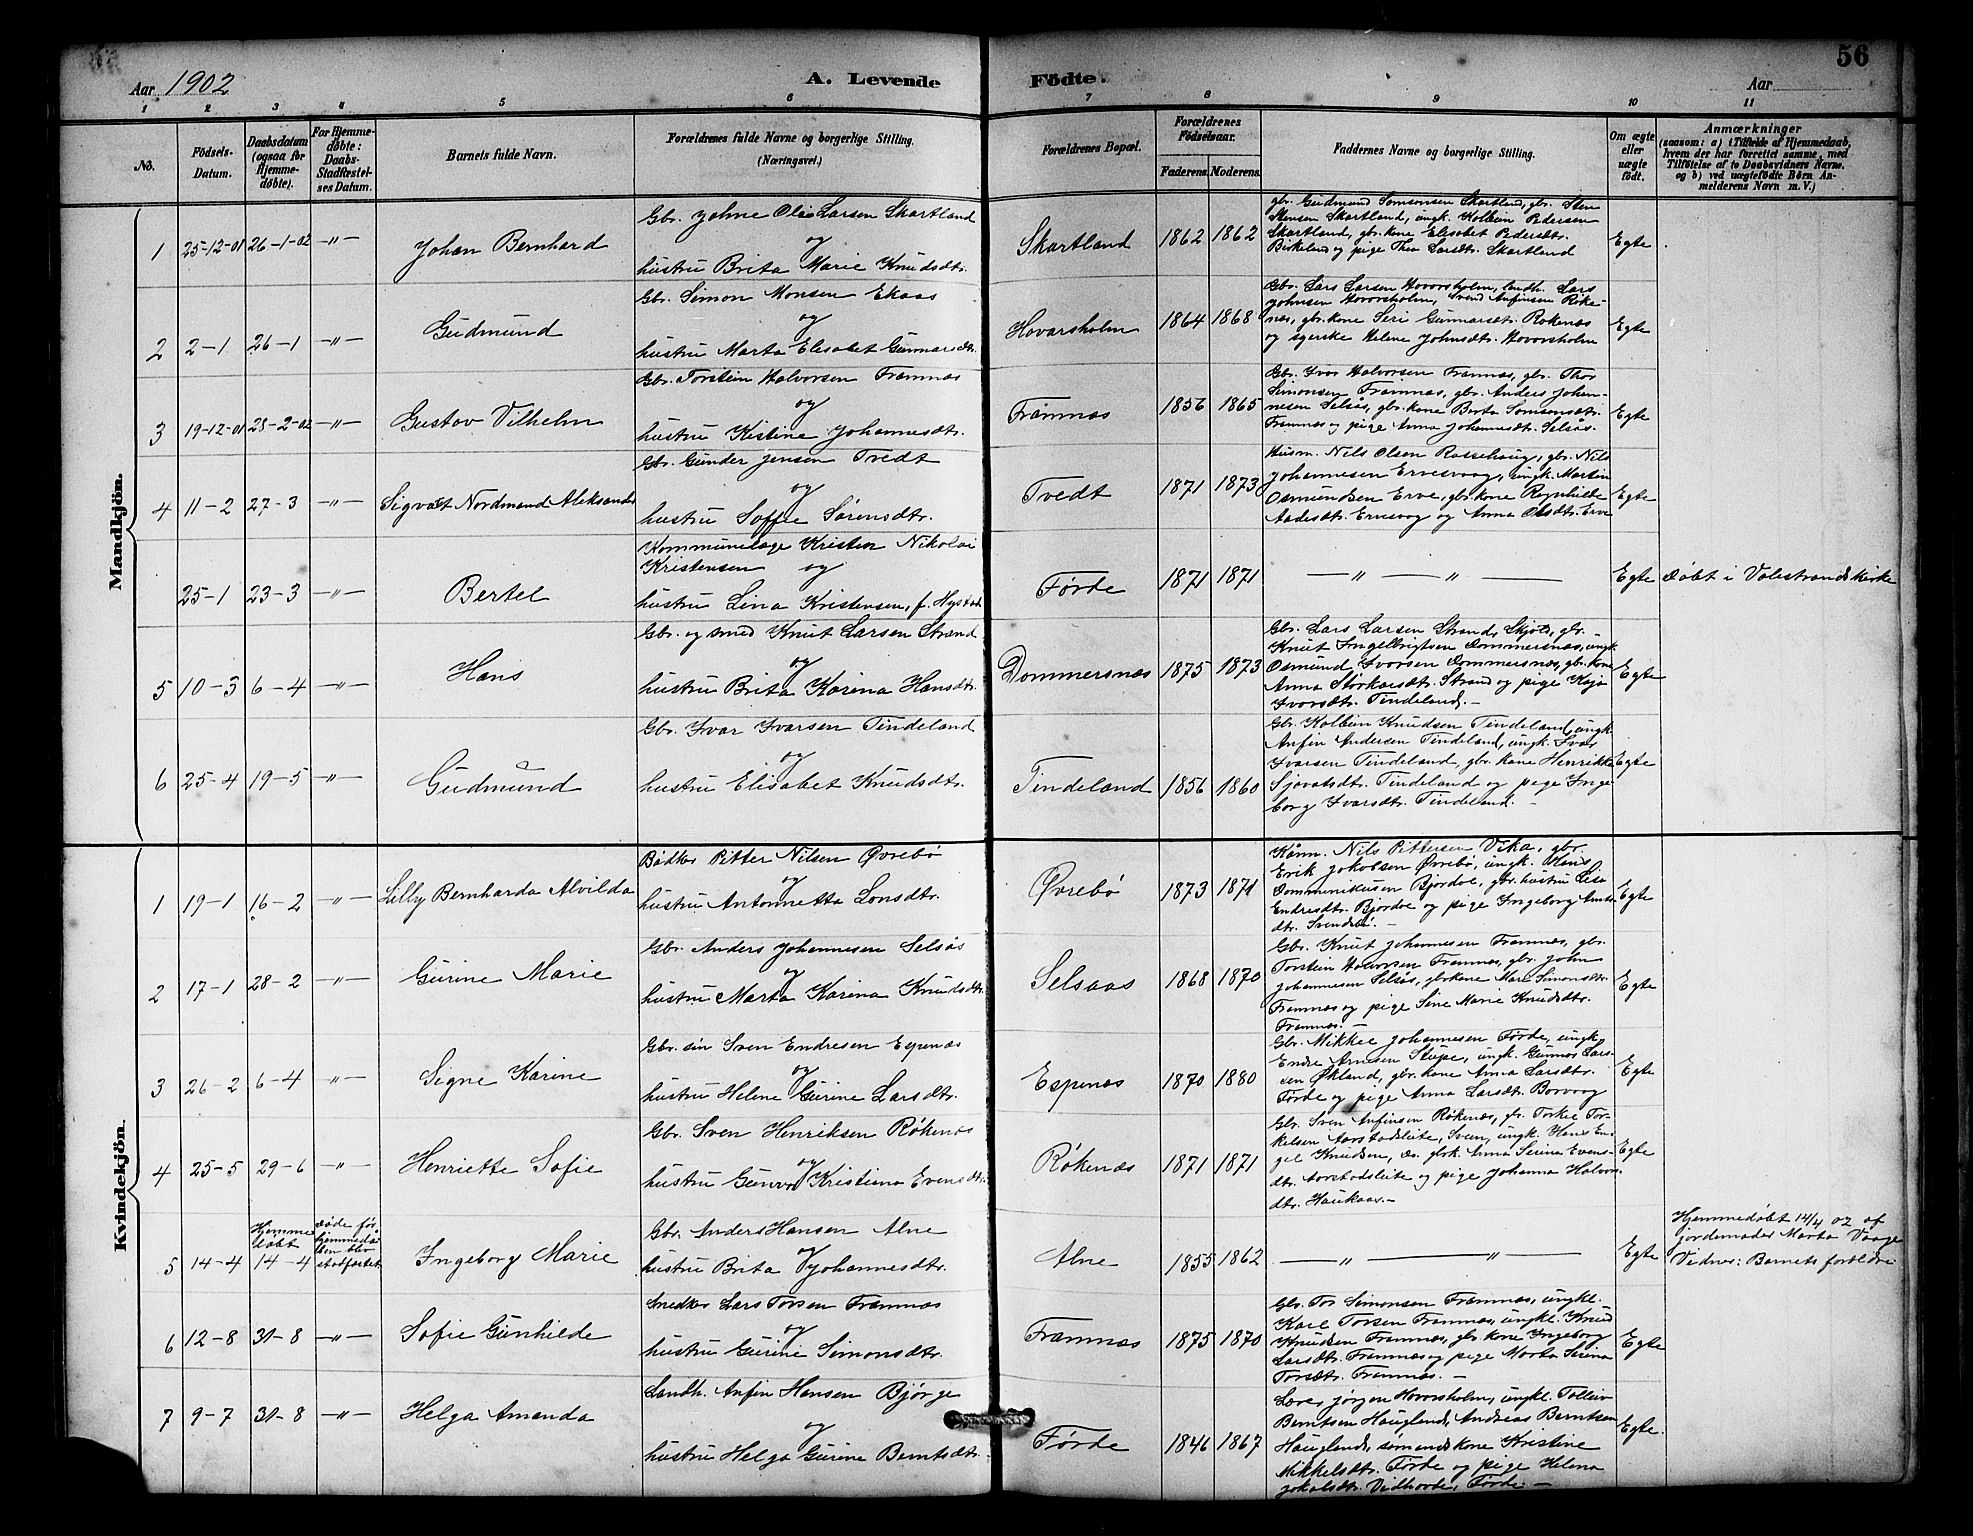 56
Aar 1902
A. Levende
Födte.
Aar
1 2 3 4 5 6 7 8 9 10 11
No.
Födsels-Datum.
Daabsdatum (ogsaa for Hjemme-døbte).
For Hjemme-døbte: Daabs-Stadfæstel-ses Datum.
Barnets fulde Navn.
Forældrenes fulde Navne og borgerlige Stilling. (Næringsvei.)
Forældrenes Bopæl.
Forældrenes Födselsaar.
Faderens. Moderens.
Faddernes Navne og borgerlige Stilling.
Om ægte eller uægte födt.
Anmærkninger
(saasom: a) i Tilfælde af Hjemmedaab,
hvem der har forrettet samme, med
Tilföielse af to Daabsvidners Navne,
og b) ved uægtefödte Börn An-
melderens Navn m. V.)
Mandkjön.
1 25-12-01 26-1-02 -"- Johan Bernhard
Gbr. Johne Olai Larsen Skartland
og
hustru Brita Marie Knudsdtr.
Skartland 1862 1862
gbr. Gudmund Samsonsen Skartland, gbr. Sten
Stensen Skartland, ungk. Kolbein Pedersen
Skartland, gbr. kone Elisabet Pedersdtr.
Birkeland og pige Thea Larsdtr. Skartland
Egte
2 2-1 26-1 -"- Gudmund
Gbr. Simon Monsen Ekaas
og
hustru Marta Elisabet Gunnarsdtr.
Hovarsholm 1864 1868
Gbr. Lars Larsen Hovorsholm, landh. Lars
Johnsen Hovorsholm, Svend Anfinsen Røke-
næs, gbr. kone Seri Gunnarsdtr. Røkenæs
og sgerske Helene Johnsdtr. Hovorsholm
Egte
3 19-12-01 28-2-02 -"- Gustav Vilhelm
Gbr. Torstein Halvorsen Framnæs
og
hustru Kistine Johannesdtr.
Framnæs 1856 1865
Gbr. Ivar Halvorsen Framnæs, gbr. Thor
Simonsen Framnæs, gbr. Anders Johan-
nesen Selsås, gbr. kone Berta Samsonsdtr.
Framnæs og pige Anna Johannesdtr. Selsås.
Egte
4 11-2 27-3 -"- Sigvat Nordmand Aleksander
Gbr. Gunder Jensen Tvedt
og
hustru Soffie Sørensdtr.
Tvedt 1871 1873
Husm. Nils Olsen Rossehaug, gbr. Nils
Johannesen Ervesvaag, ungk. Martin
Osmundsen Erve, gbr. kone Ragnhilde
Aadesdtr. Ervesvag og Anna Olsdtr. Erve
Egte
25-1 23-3 -"- Bertel
Kommunelæge Kristen Nikolai
Kristensen og
hustru Lina Kristensen, f. Hystad
Førde 1871 1871
— " — " —
Egte Døbt i Valestrands kirke
5 10-3 6-4 -"- Hans
Gbr. og smed Knut Larsen Strand
og
hustru Brita Karina Hansdtr.
Dommersnæs 1875 1873
Gbr. Lars Larsen Strand, Skjold, gbr.
Knut Ingelbrigtsen Dommersnæs, ungk.
Osmund Ivarsen Dommersnæs, gbr. kone
Anna Størkarsdtr. Strand og pige Kaja
Ivarsdtr. Tindeland. -
Egte
6 25-4 19-5 -"- Gudmund
Gbr. Ivar Ivarsen Tindeland
og
hustru Elisabet Knudsdtr.
Tindeland 1856 1860
Gbr. Kolbein Knudsen Tindeland, ungk.
Anfin Andersen Tindeland, ungk. Ivar
Ivarsen Tindeland, gbr. kone Henrikke
Sjovatsdtr. Tindeland og pige Inge-
borg Ivarsdtr. Tindeland. -
Egte
Kvindekjön.
1 19-1 16-2 -"- Lilly Bernharda Alvilda
Bødker Pitter Nilsen Øvrebø
og
hustru Antonnetta Larsdtr.
Øvrebø 1873 1871
Kårm. Nils Pittersen Vika, gbr.
Erik Jakobsen Øvrebø, ungk. Hans
Domminikusen Bjordal, gbr. hustru Lisa
Endresdtr. Bjordal og pige Ingeborg Amts-
dtr. Svendsbø. -
Egte
2 17-1 28-2 -"- Gurine Marie
Gbr. Anders Johannesen Selsås
og
hustru Marta Karina Knudsdtr.
Selsaas 1868 1870
Gbr. Knut Johannesen Framnæs, gbr.
Torstein Halvorsen Framnæs, gbr. John
Johannesen Selsås, gbr. kone Mari Simonsdtr.
Framnæs og pige Sine Marie Knudsdtr.
Framnæs.
Egte
3 26-2 6-4 -"- Signe Karine
Gbr. sön Sven Endresen Espenæs
og
hustru Helene Gurine Larsdtr.
Espenæs 1870 1880
Gbr. Mikkel Johannesen Førde, ungk.
Endre Arnesen Stupe, ungk. Gunnar Lars-
sen Økland, gbr. kone Anna Larsdtr.
Førde og pige Anna Larsdtr. Borvaag
Egte
4 25-5 29-6 -"- Henriette Sofie
Gbr. Sven Henriksen Røkenæs
og
hustru Gunvor Kristiana Evensdtr.
Røkenæs 1871 1871
Gbr. Sven Anfinsen Røkenæs, gbr. Torkel Tor-
kelsen Aarstadsleite, Sveen, ungk. Hans En-
gel Knudsen, do. gbrk. Anna Serina Evens-
dtr. Aarstadsleite og pige Johanna Halvors-
dtr. Haukaas. -
Egte
5 14-4 Hjemme døbt 14-4 døde før hjemmedå-ben blev stadfæstet Ingeborg Marie
Gbr. Anders Hansen Alne
og
hustru Brita Johannesdtr.
Alne 1855 1862
— " — " —
Egte
Hjemmedøbt 14/4 02 af
jordemoder Marta Vaage
Vidner: Barnets forældre
6 12-8 31-8 -"- Sofie Gunhilde
Snedker Lars Torsen Framnæs
og
hustru Gurine Simonsdtr.
Framnæs 1875 1870
Gbr. Tor Simonsen Framnæs, ungkl.
Karl Torsen Framnæs, ungkl. Knud
Knudsen Framnæs, gbr. kone Ingeborg
Larsdtr. Framnæs og pige Marta Serina
Torsdtr. Framnæs. -
Egte
7 9-7 31-8 -"- Helga Amanda
Landh. Anfin Hansen Bjørge
og
hustru Helga Gurine Berntsdtr.
Førde 1846 1867
Lars Jørgen Hovorsholm, ungkl. Tolleiv
Berntsen Haugland, Andreas Berntsen
Haugland, sømands kone Kristine
Mikkelsdtr. Førde og pige Helena
Jakobsdtr. Vidhovde, Førde. -
Egte.